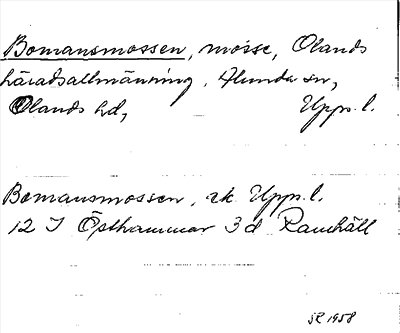 Bomansmossen, mosse, Olands
häradsallmänning, Alunda sn,
Olands hd, Upps. l.
Bomansmossen, ek. Upps. l.
12 I Östhammar 3 d Ramhäll
SR 1958